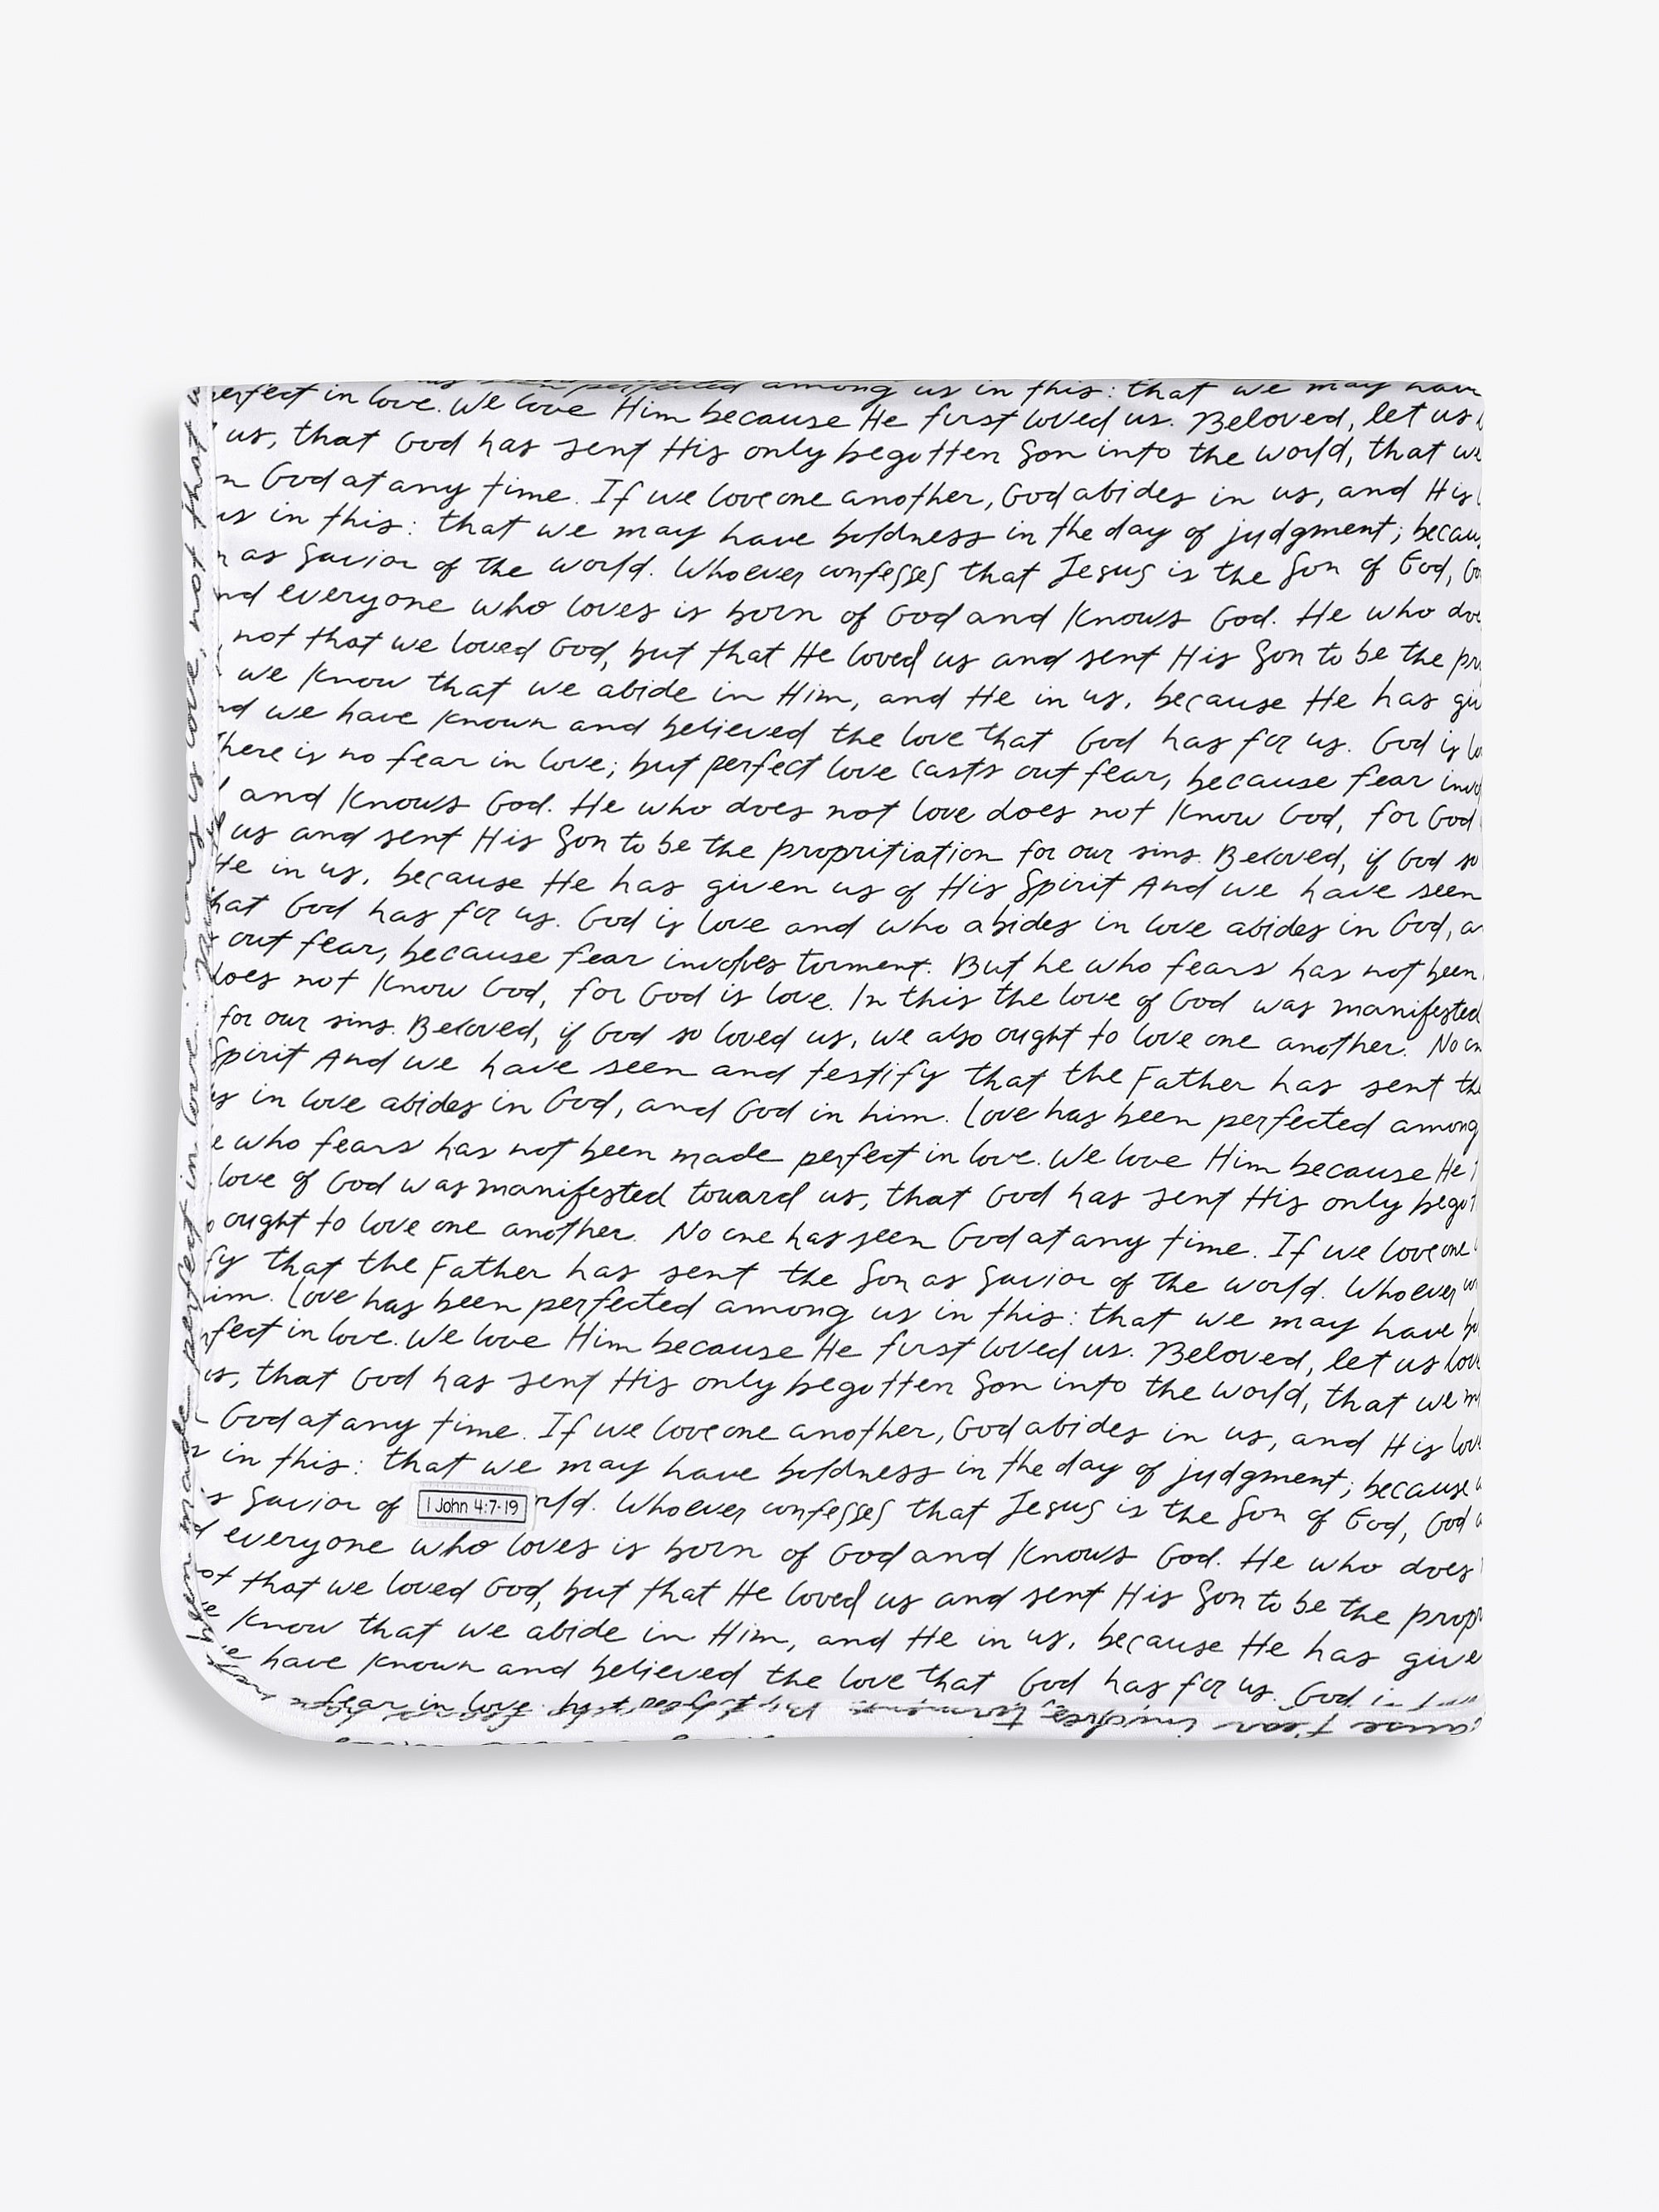 among us in this: that we may have
perfect in love. We love Him because He first loved us. Beloved, let us
us, that God has sent His only begotten Son into the world, that we
God at any time. If we love one another, God abides in us, and His
us in this: that we may have boldness in the day of judgment; becau
as Savior of the world. Whoever confesses that Jesus is the Son of God, Go
nd everyone who loves is born of God and Knows God. He who doe
not that we loved God, but that He loved us and sent His Son to be the pr
we Know that we abide in Him, and He in us, because He has giv
nd we have known and believed the love that God has for us. God is lo
There is no fear in love; but perfect love casts out fear, because fear invo
and Knows God. He who does not love does not Know God, for God
us and sent His Son to be the propritiation for our sins. Beloved, if God so
He in us, because He has given us of His Spirit And we have seen
hat God has for us. God is love and who abides in love abides in God, a
out fear, because fear involves torment. But he who fears has not been
does not Know God, for God is love. In this the love of God was manifested
for our sins. Beloved, if God so loved us, we also ought to love one another. No on
Spirit And we have seen and testify that the Father has sent the
s in love abides in God, and God in him. Love has been perfected among
e who fears has not been made perfect in love. We love Him because He
love of God was manifested toward us, that God has sent His only begot
ought to love one another. No one has seen God at any time. If we love one
fy that the Father has sent the Son as Savior of the world. Whoever
im. Love has been perfected among us in this: that we may have bo
rfect in love. We love Him because He first loved us. Beloved, let us lov
us, that God has sent His only begotten Son into the world, that we m
God at any time. If we love one another, God abides in us, and His lov
in this: that we may have boldness in the day of judgment; because
s Savior of 1 John 4:7-19 rld. Whoever confesses that Jesus is the Son of God, God
d everyone who loves is born of God and Knows God. He who does
ot that we loved God, but that He loved us and sent His Son to be the prop
e Know that we abide in Him, and He in us, because He has give
e have known and believed the love that God has for us. God
fear in love